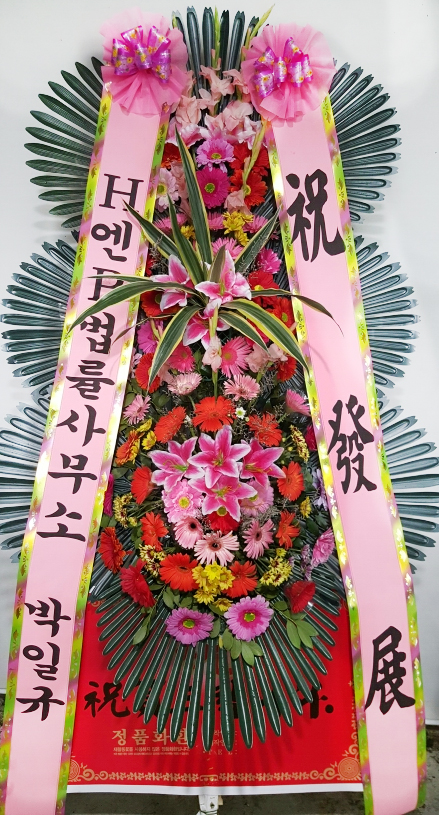 H엔P법률사무소
박일규
祝
發
展
祝
정품화환